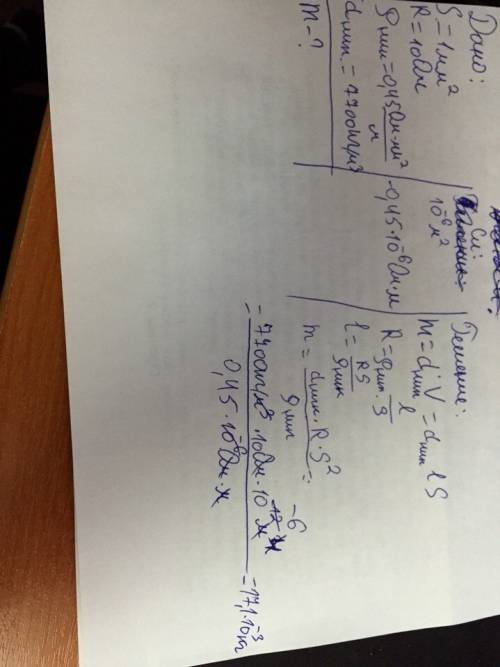 Дано:
S = 1мм²
R = 10Ом
ρник = 0,45 Ом·мм²/м
dник = 7700кг/м³
m - ?
Си:
10⁻⁶м²
0,45·10⁻⁶Ом·м
Решение:
m = dник·V = dник l S
R = ρник · l/S
l = RS/ρник
m = dник·R·S²/ρник =
= 7700кг/м³·10Ом·10⁻¹²м⁴/0,45·10⁻⁶Ом·м = 17,1·10⁻³кг